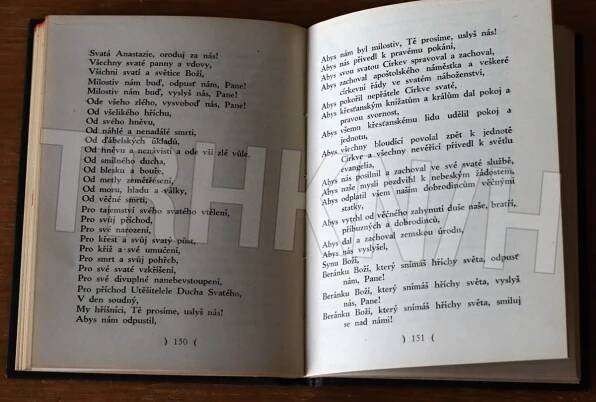 Svatá Anastazie, oroduj za nás!
Všechny svaté panny a vdovy,
Všichni svatí a světice Boží,
Milostiv nám buď, odpusť nám, Pane!
Milostiv nám buď, vyslyš nás, Pane!
Ode všeho zlého, vysvoboď nás, Pane!
Od všelikého hříchu,
Od svého hněvu,
Od náhlé a nenadálé smrti,
Od ďábelských úkladů,
Od hněvu a nenávisti a ode vší zlé vůle,
Od smilného ducha,
Od blesku a bouře,
Od metly zemětřesení,
Od moru, hladu a války,
Od věčné smrti,
Pro tajemství svého svatého vtělení,
Pro svůj příchod,
Pro své narození,
Pro křest a svůj svatý půst,
Pro kříž a své umučení,
Pro smrt a svůj pohřeb,
Pro své svaté vzkříšení,
Pro své divuplné nanebevstoupení,
Pro příchod Utěšitele Ducha Svatého,
V den soudný,
My hříšníci, Tě prosíme, uslyš nás!
Abys nám odpustil,
) 150 (
Abys nám byl milostiv, Tě prosíme, uslyš nás!
Abys nás přivedl k pravému pokání,
Abys svou svatou Církev spravoval a zachoval,
Abys zachoval apoštolského náměstka a veškeré
církevní řády ve svatém náboženství,
Abys pokořil nepřátele Církve svaté,
Abys křesťanským knížatům a králům dal pokoj a
pravou svornost,
Abys všemu křesťanskému lidu udělil pokoj a
jednotu,
Abys všechny bloudící povolal zpět k jednotě
Církve a všechny nevěřící přivedl k světlu
evangelia,
Abys nás posilnil a zachoval ve své svaté službě,
Abys naše mysli pozdvihl k nebeským žádostem,
Abys odplatil všem našim dobrodincům věčnými
statky,
Abys vytrhl od věčného zahynutí duše naše, bratří,
příbuzných a dobrodinců,
Abys dal a zachoval zemskou úrodu,
Abys nás vyslyšel,
Synu Boží,
Beránku Boží, který snímáš hříchy světa, odpusť
nám, Pane!
Beránku Boží, který snímáš hříchy světa, vyslyš
nás, Pane!
Beránku Boží, který snímáš hříchy světa, smiluj
se nad námi!
) 151 (